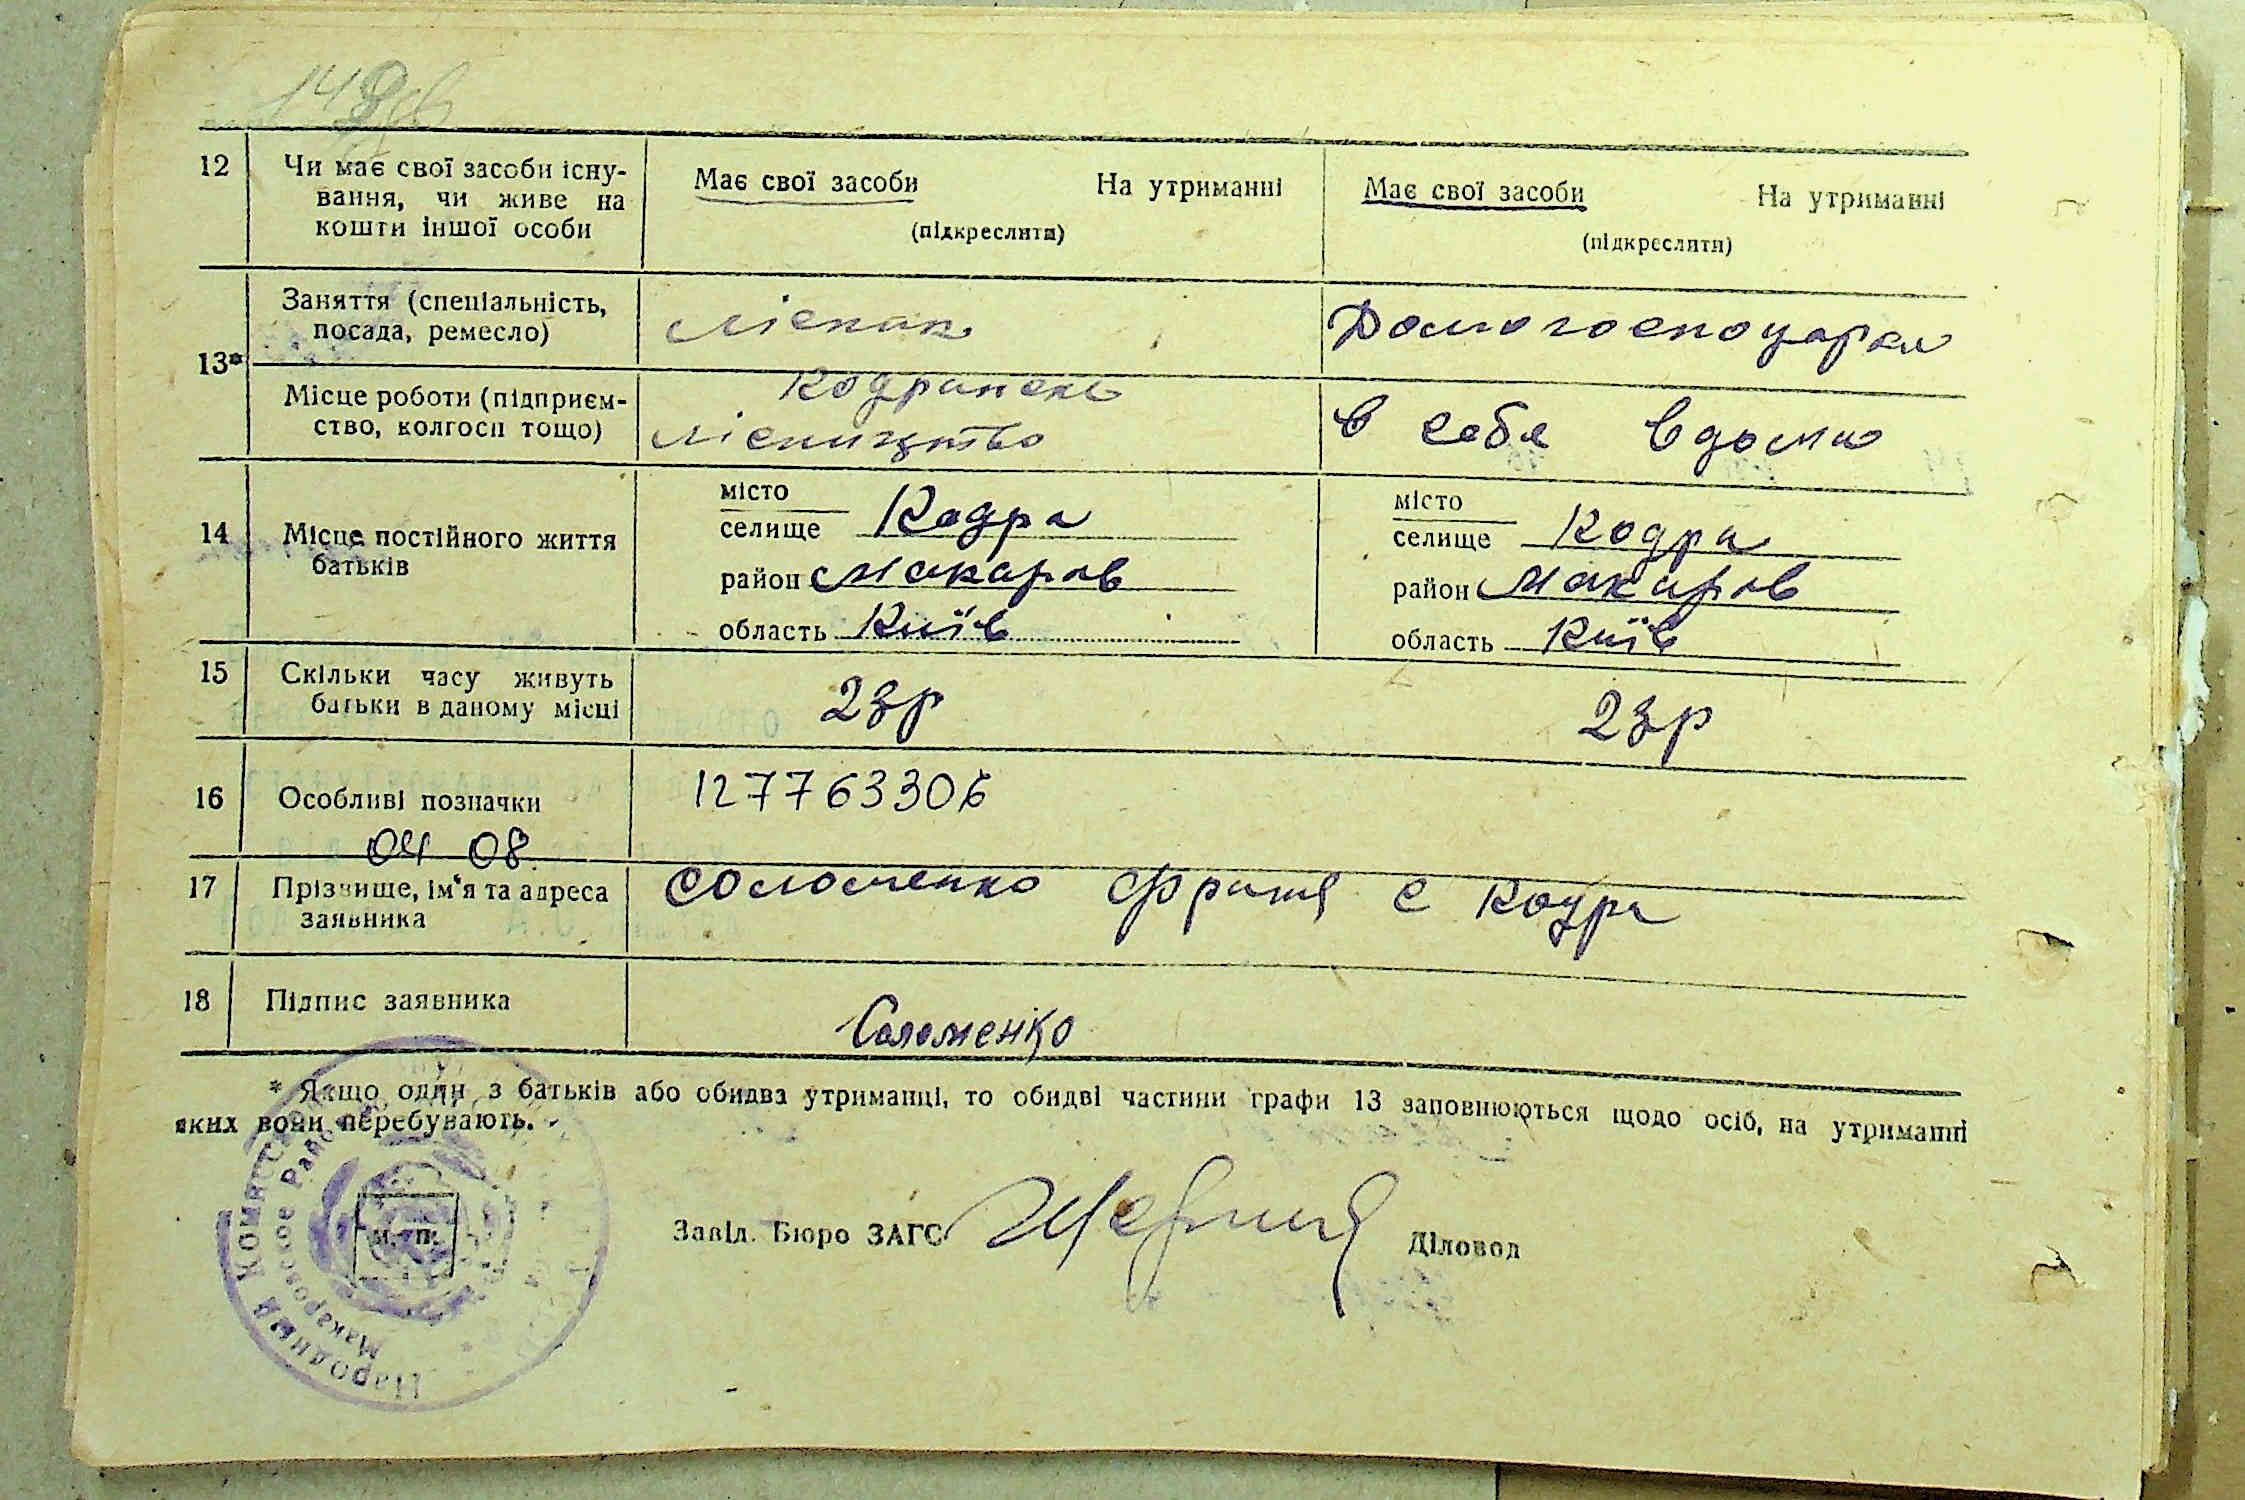 12
Чи має свої засоби існу-
вання, чи живе на
кошти іншої особи
Має свої засоби На утриманні
(підкреслити)
Має свої засоби На утриманні
(підкреслити)
13*
Заняття (спеціальність,
посада, ремесло)
Домогосподарка
Місце роботи (підприєм-
ство, колгосп тощо)
лісництво
в себя вдома
14
Місце постійного життя
батьків
місто
селище Кодра
район Макарів
область Київ
місто
селище Кодра
район Макарів
область Київ
15
Скільки часу живуть
батьки в даному місці
23р
23р
16
Особливі позначки
127763306
04 08
17
Прізвище, ім'я та адреса
заявника
Соломенко с Кодра
18
Підпис заявника
Соломенко
* Якщо один з батьків або обидва утриманці, то обидві частини графи 13 заповнюються щодо осіб, на утриманні
яких вони перебувають.
Народный Комисса
Макаровское Райо
М. П.
Завід. Бюро ЗАГС
Діловод